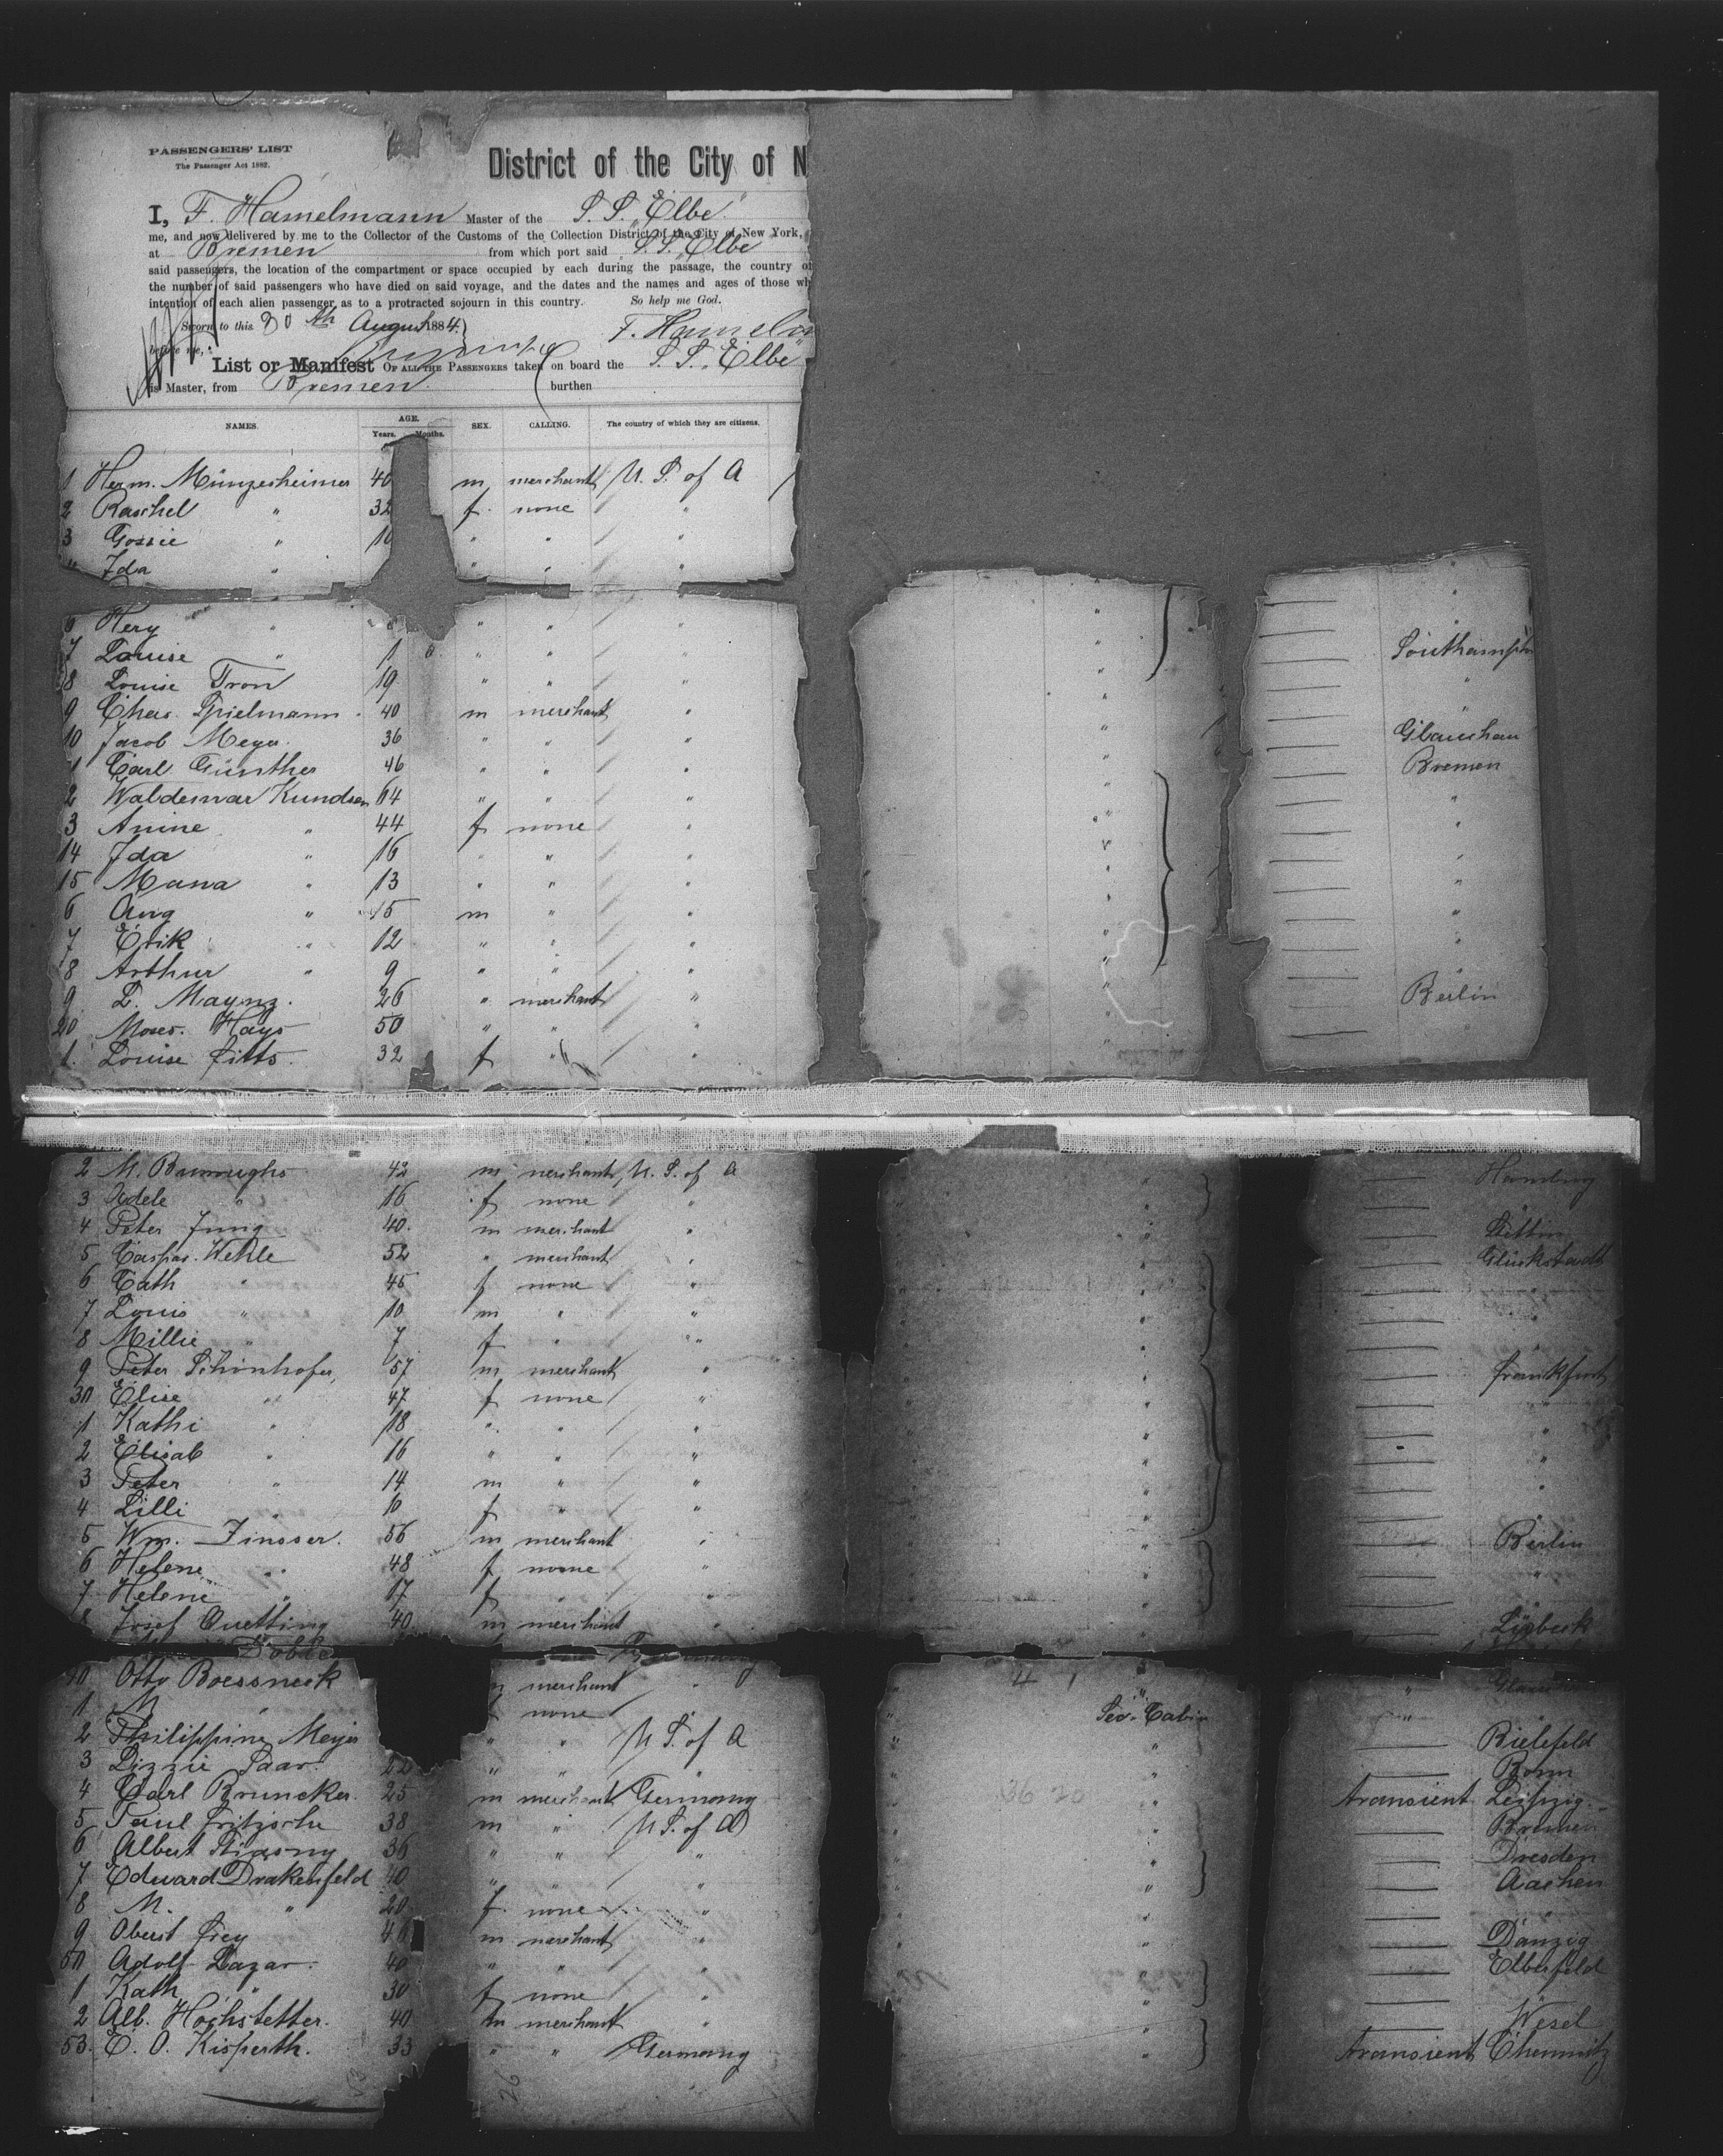 PASSENGERS' LIST
The Passenger Act 1882.
District of the City of N
I, F. Hamelmann Master of the S. S. "Elbe"
me, and now delivered by me to the Collector of the Customs of the Collection District of the City of New York,
at Bremen from which port said S. S. Elbe
said passengers, the location of the compartment or space occupied by each during the passage, the country of
the number of said passengers who have died on said voyage, and the dates and the names and ages of those wh
intention of each alien passenger as to a protracted sojourn in this country. So help me God.
Sworn to this 30th August 1884 F. Hamelm
before me,
List or Manifest OF ALL THE PASSENGERS taken on board the S. S. "Elbe"
is Master, from Bremen burthen
NAMES. AGE. SEX. CALLING. The country of which they are citizens.
Years. Months.
1 Herm. Münzesheimer 40 m merchant U. S. of A
2 Raschel " 32 f. none "
3 Gossie " 10 " " "
" Ida " " " "
6 Hery " " " "
7 Louise " 1 " " "
8 Louise Tron 19 " " " Southampton
9 Chas. Spielmann 40 m merchant "
10 Jacob Meyer 36 " " " Glauchau
1 Carl Günther 46 " " " Bremen
2 Waldemar Kundsen 64 " " " "
3 Anine " 44 f none " "
14 Ida " 16 " " " "
15 Mana " 13 " " " "
6 Aug " 15 m " " "
7 Erik " 12 " " " "
8 Arthur " 9 " " " "
9 L. Maynz. 26 " merchant " Berlin
20 Moses. Hays 50 " " " "
1. Louise Fitts. 32 f " "
2 M. Burroughs 42 m merchant U. S. of A Hamburg
3 Adele " 16 f none "
4 Peter Jung 40. m merchant " Stettin
5 Caspar. Wehle 52 " merchant " Glückstadt
6 Cath " 45 f none " "
7 Louis " 10 m " "
8 Millie " 7 f " "
9 Peter Schönhofer, 57 m merchant " Frankfurt
30 Elise " 47 f none " "
1 Kathi " 18 " " " "
2 Elisab " 16 " " " "
3 Peter " 14 m " " "
4 Lilli 10 f " "
5 Wm. Zinsser. 56 m merchant " Berlin
6 Helene " 48 f none " "
7 Helene " 17 f " "
8 Josef Quetting 40 m merchant " Lübeck
40 Otto Boessneck m merchant " "
1 M " none " Sec. Cabin "
2 Philippine Meyer " " U S. of A " Bielefeld
3 Lizzie Saar. 22 " " " Bonn
4 Carl Bruncker. 25 m merchant Germany " transient Leipzig.
5 Paul Fritzsche 38 m " U S. of A " Bremen
6 Albert 36 " " " " Dresden
7 Edward Drakenfeld 40 " " " " Aachen
8 M. " 20 f none "
9 Oberst Frey m merchant " Danzig
50 Adolf Lazar. 40 " " " Elberfeld
1 Kath " 30 f none "
2 Alb. Hochstetter. 40 m merchant " Wesel
53. E. O. Kisperth. 33 " " Germany " transient Chemnitz